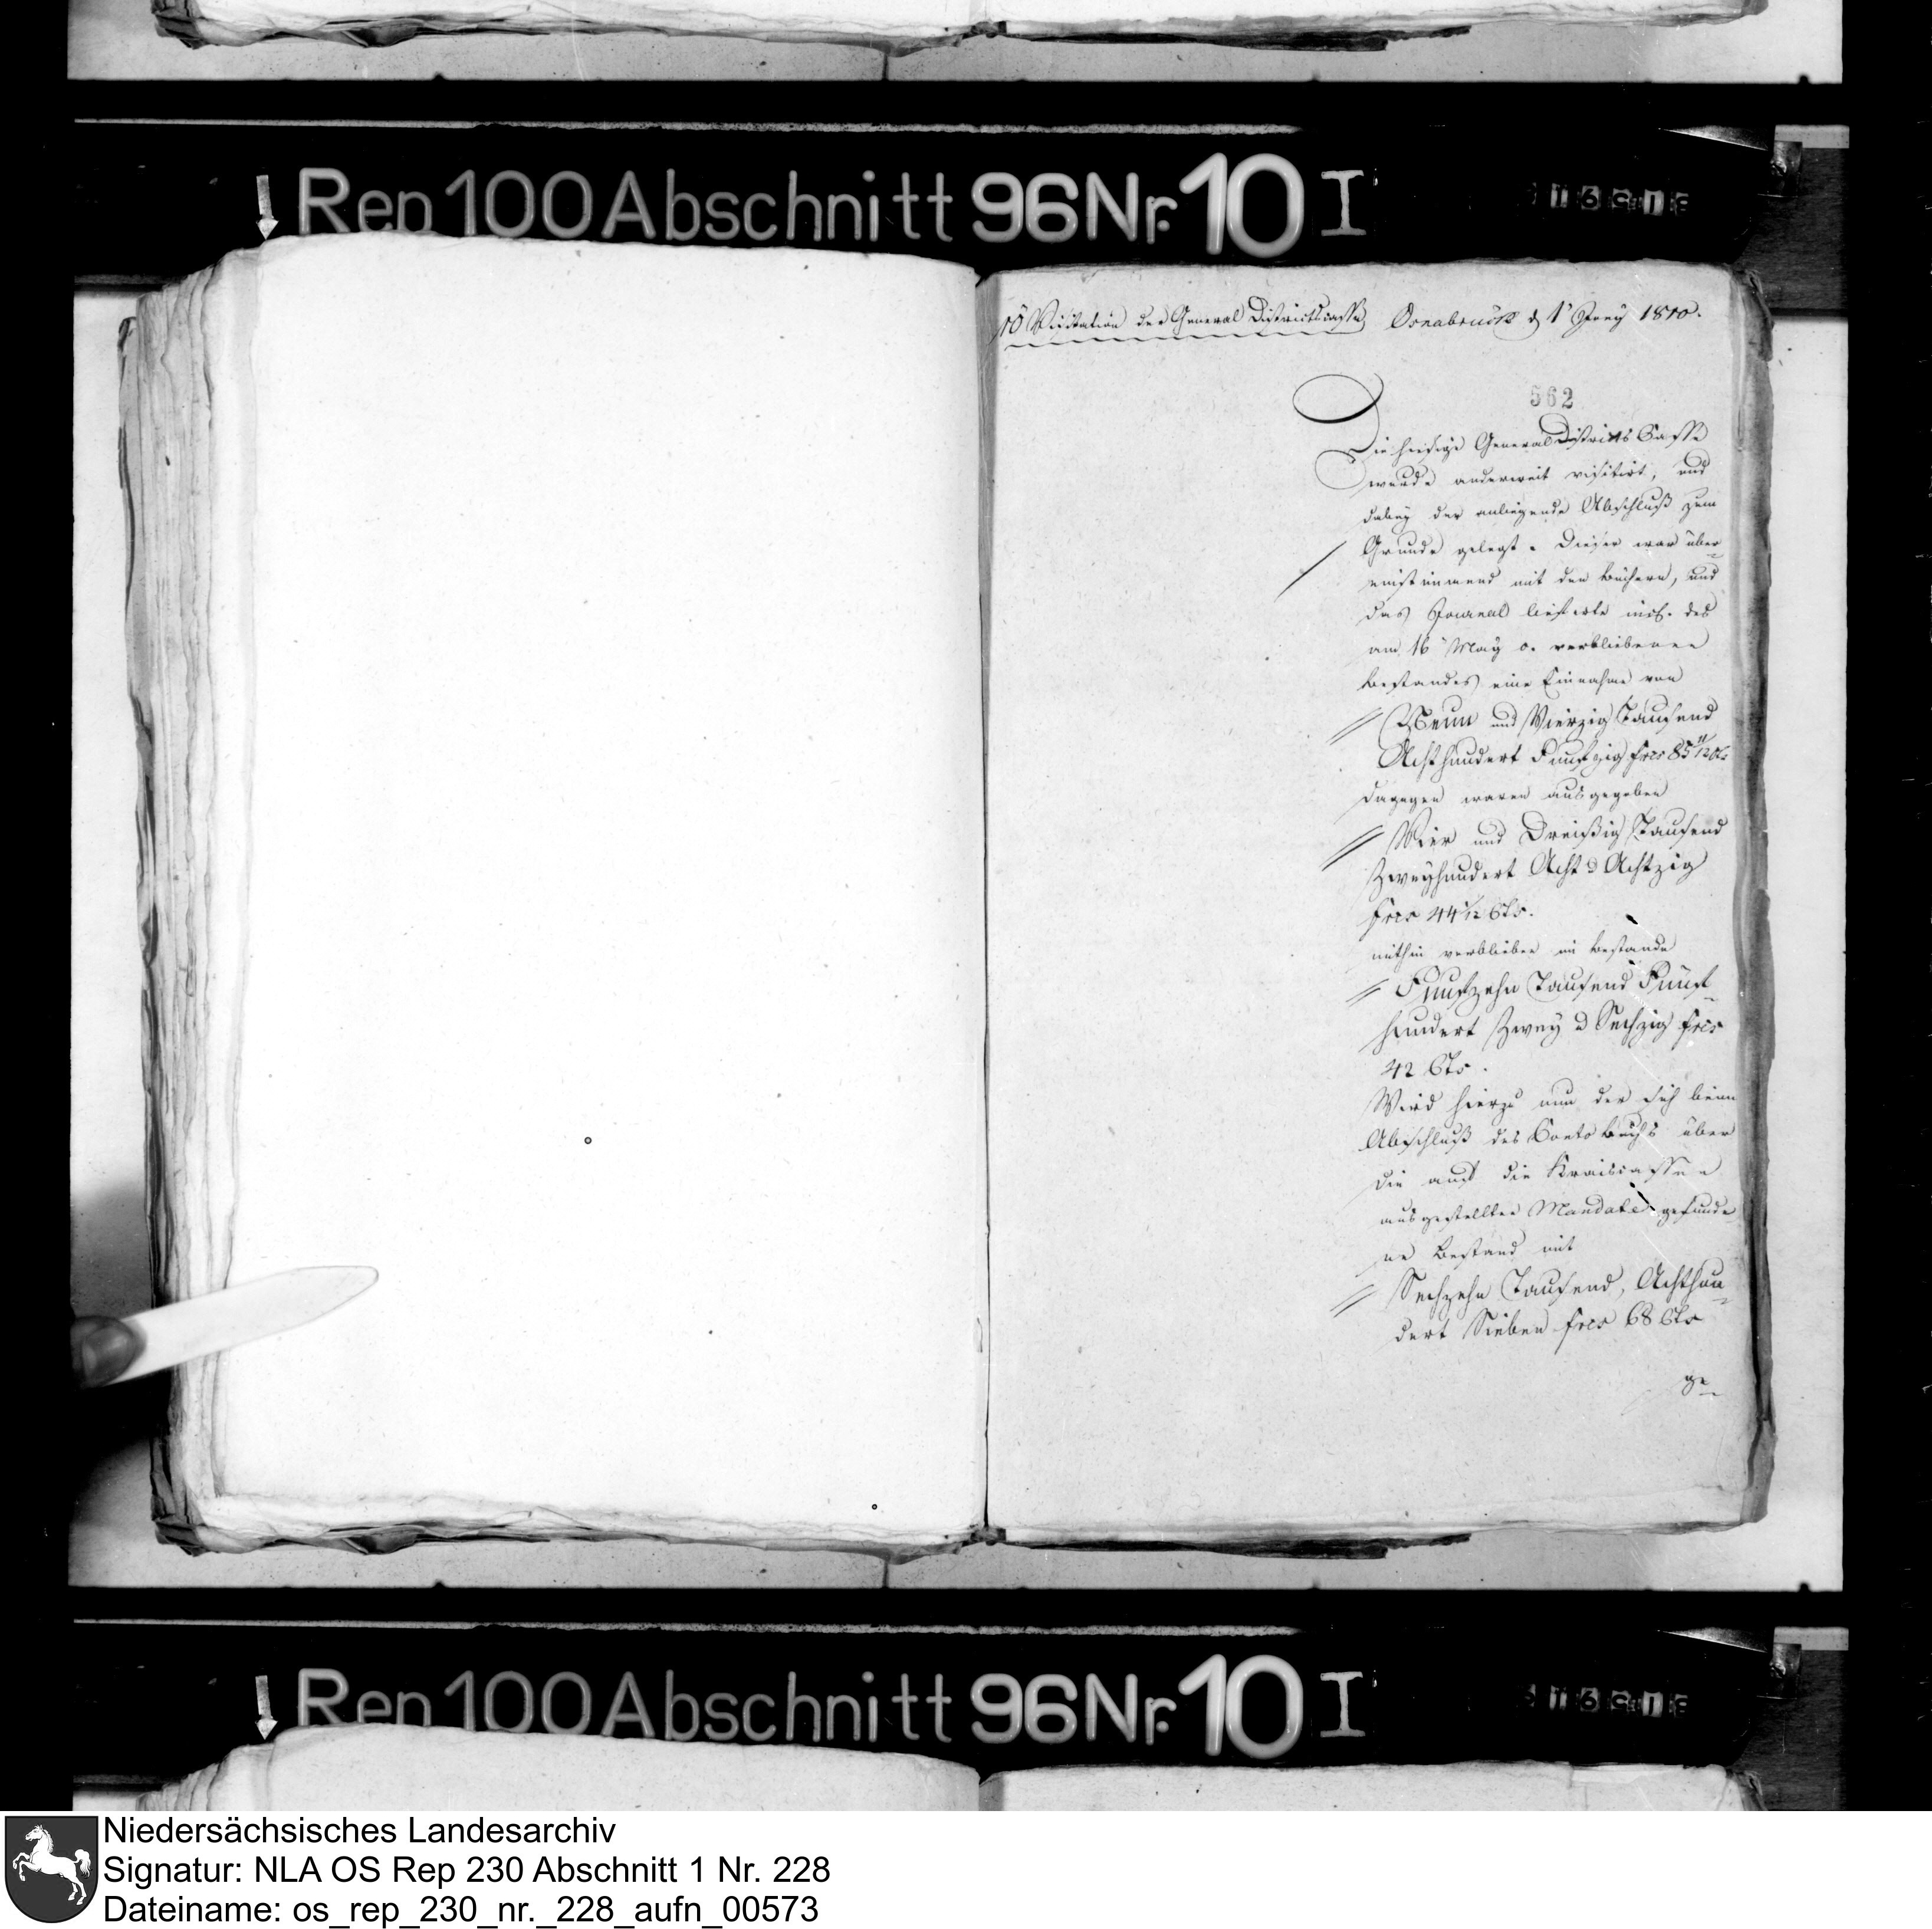 Rep 100 Abschnitt 96 Nr. 10 I
Visitation der General Districtscasse
Osnabrück d 1 Juny 1810.
562
Die hiesige General Districts Casse
wurde anderweit visitirt, und
dabey der anliegende Abschluß zum
Grunde gelegt. Dieser war über
einstimmend mit den Büchern, und
das Journal lieferte incl. des
am 16 May c. verbliebenen
Bestandes eine Einnahme von
Neun und Vierzig Tausend
Achthundert Funfzig frcs 85 11/12 Cts
dagegen waren ausgegeben
Vier und Dreißig Tausend
Zweyhundert Acht u Achtzig
frcs 44 1/12 Cts.
mithin verblieben im Bestande
Funfzehn Tausend Fünf
hundert Zwey u Sechzig frcs
42 Cts.
Wird hierzu nun der sich beim
Abschluß des Conto Buchs über
die auf die Kraiscassen
ausgestellten Mandate gefunde
ne Bestand mit
Sechzehn Tausend, Achthun
dert Sieben frcs 68 Cts
ge-
Rep 100 Abschnitt 96 Nr. 10 I
Niedersächsisches Landesarchiv
Signatur: NLA OS Rep 230 Abschnitt 1 Nr. 228
Dateiname: os_rep_230_nr._228_aufn_00573